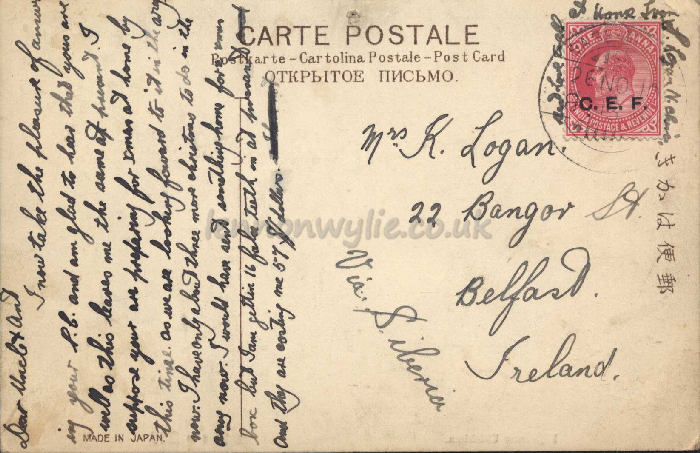 CARTE POSTALE
Postkarte – Cartolina Postale – Post Card
ОТКРЫТОЕ ПИСЬМО.
ONE ANNA
C. E. F.
INDIA POSTAGE & REVENUE
きかは便郵
Mrs K. Logan.
22 Bangor St.
Belfast.
Ireland.
Via. Siberia
Dear Uncle & Aunt
I now take the pleasure of answer
ing your P.C. and am glad to hear that yours are
well as this leaves me the same at present I
suppose your are preparing for xmas at home by
this time. as we are looking forward to it in the army
now. I have only about three more christmas to do in the
army now. I would have sent something home for a xmas
box but I am gettin 16 false teeth in at present
And they are costing me 57
MADE IN JAPAN.
knwonwylie.co.uk